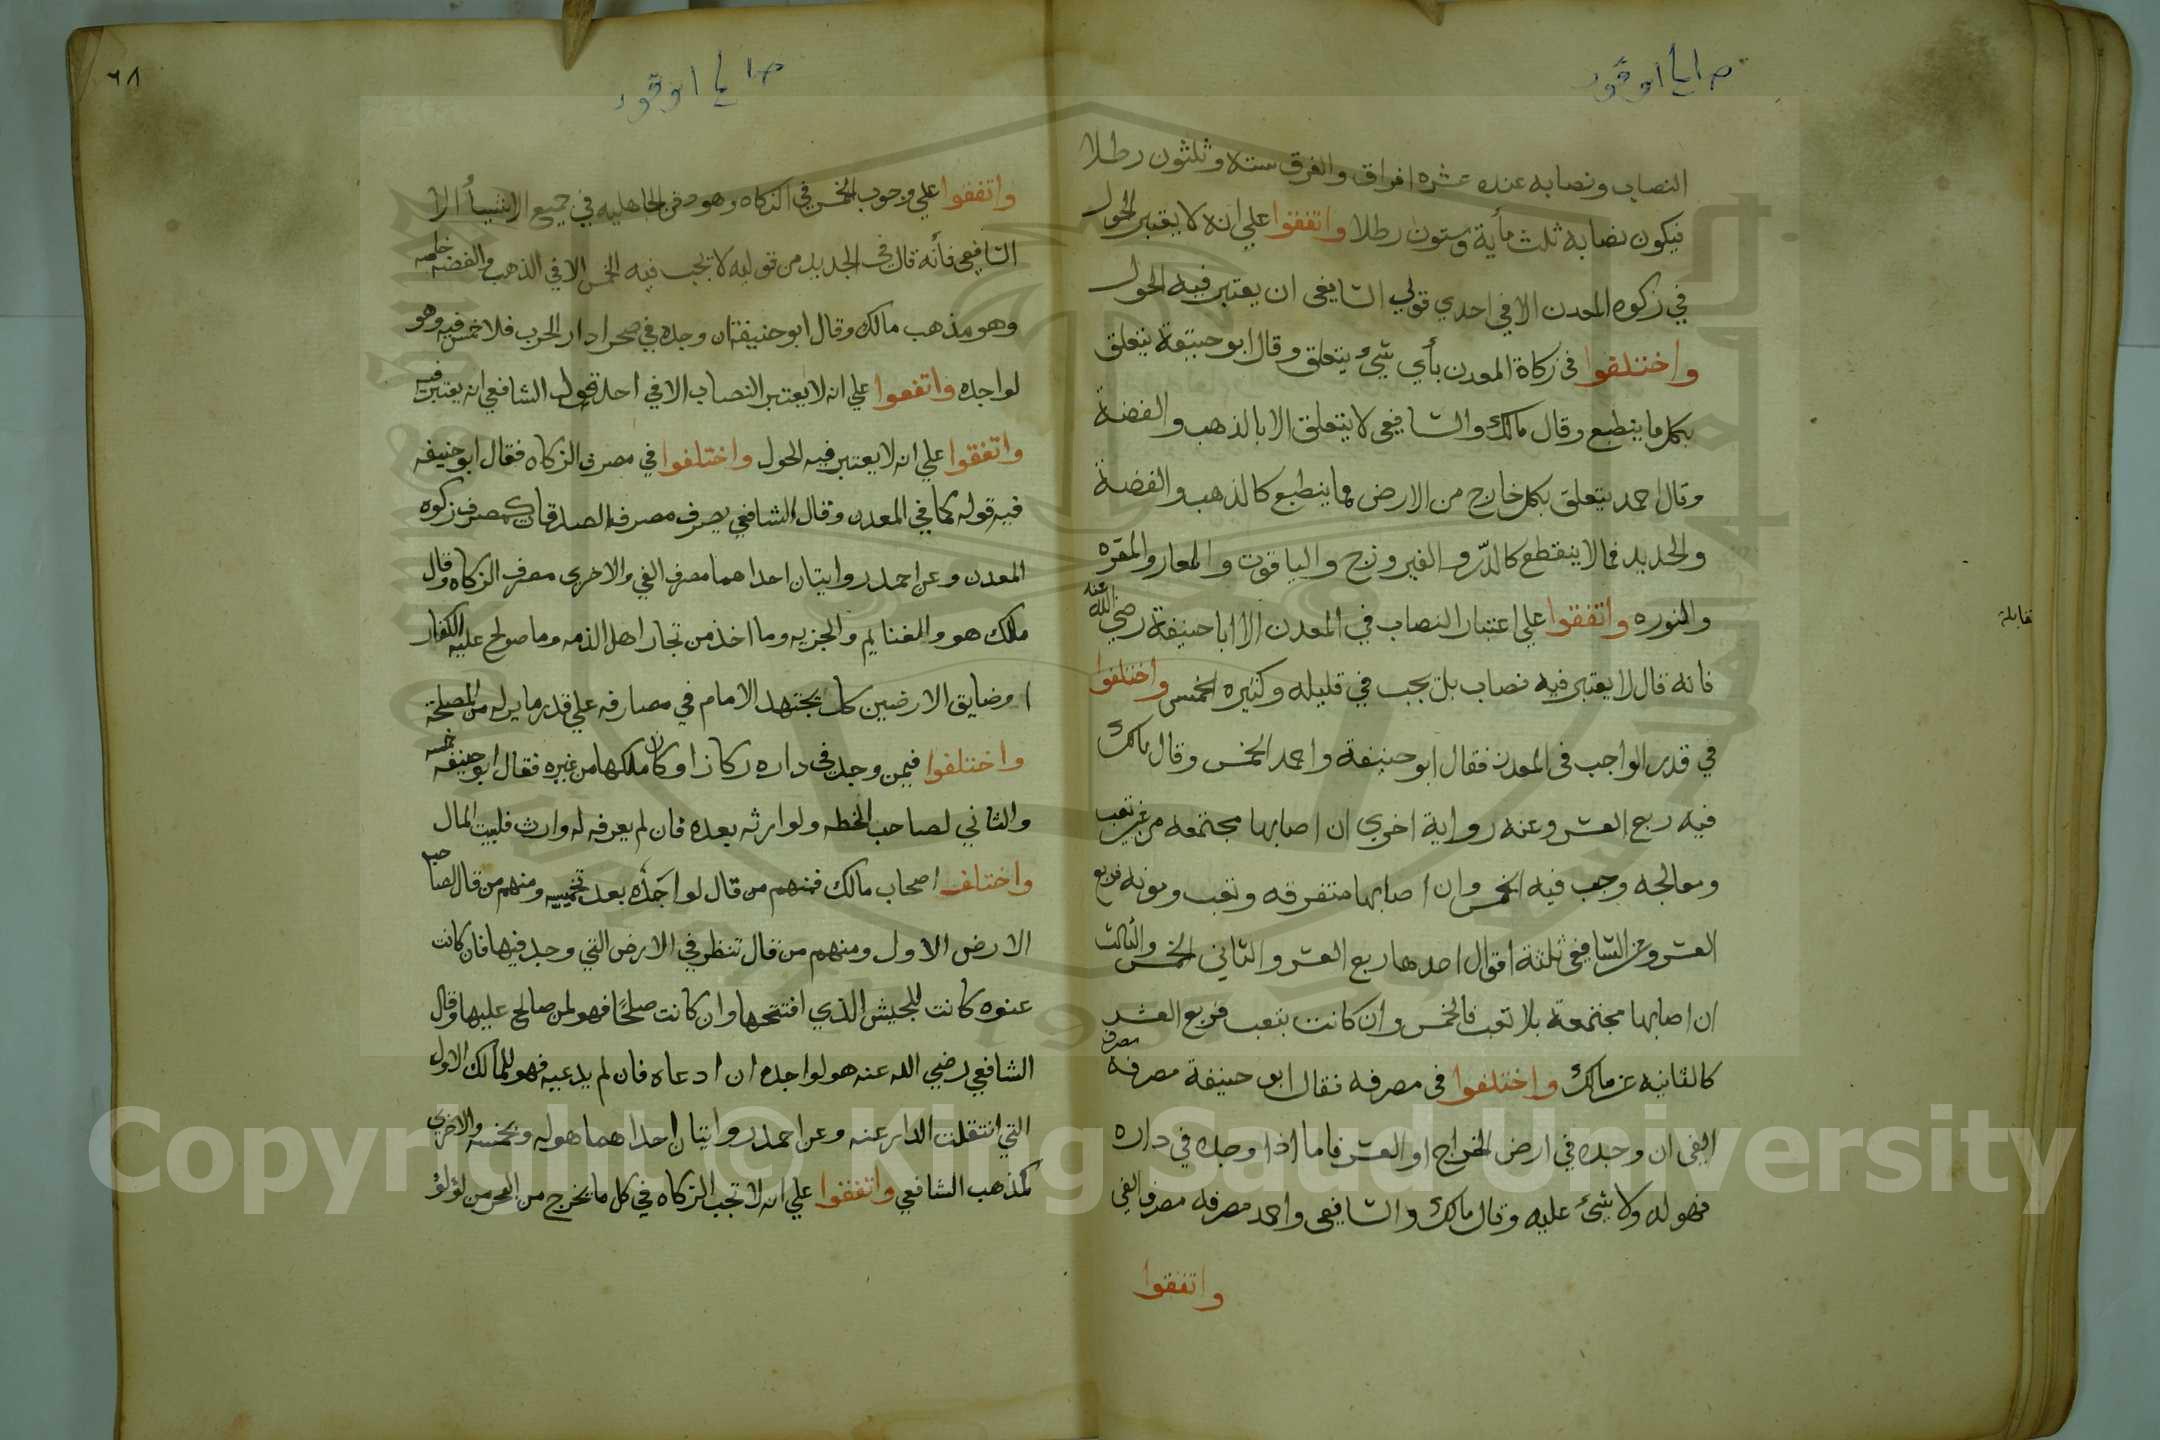 صالح اوقور
النصاب ونصابه عنده عشره افراق والفرق سته وثلثون رطلا
فيكون نصابه ثلث مأية وستون رطلا واتفقوا علي انه لا يعتبر الحول
في زكوه المعدن الا في احدي قولي الشافعي ان يعتبر فيه الحول
واختلفوا في زكاة المعدن بأي شيء يتعلق وقال ابو حنيفة يتعلق
بكل ما ينطبع وقال مالك والشافعي لا يتعلق الا بالذهب والفضة
وقال احمد يتعلق بكل خارج من الارض مما ينطبع كالذهب والفضة
والحديد فما لا ينقطع كالدّر والفيروزج والياقوت والمعار والمقره
والنوره واتفقوا علي اعتبار النصاب في المعدن الا ابا حنيفة رضي الله عنه
فانه قال لا يعتبر فيه نصاب بل يجب في قليله وكثيره الخمس واختلفوا
في قدر الواجب في المعدن فقال ابو حنيفة واحمد الخمس وقال مالك
فيه ربع العشر وعنه رواية اخري ان اصابها مجتمعه من غير تعب
ومعالجه وجب فيه الخمس وان اصابها متفرقه وتعب ومونه فربع
العشر وعن الشافعي ثلثة اقوال احدها ربع العشر والثاني الخمس والثالث
ان اصابها مجتمعة بلا تعب فالخمس وان كانت بتعب فربع العشر
كالثانيه عن مالك واختلفوا في مصرفه فقال ابو حنيفة مصرفه مصرف
الفي ان وجده في ارض الخراج او العشر فاما اذا وجده في داره
فهو له ولا شيئ عليه وقال مالك والشافعي واحمد مصرفه مصرف الفي
واتفقوا
مقابله
٦٨
صالح اوقور
واتفقوا علي وجوب الخمس في الزكاه وهو دفن الجاهليه في جميع الاشيأ الا
الشافعي فأنه قال في الجديد من قوليه لا تجب فيه الخمس الا في الذهب والفضه خاصه
وهو مذهب مالك وقال ابو حنيفة ان وجده في صحرا دار الحرب فلا خمس فيه وهو
لواجده واتفقوا علي انه لا يعتبر النصاب الا في احد قول الشافعي انه يعتبر فيه
واتفقوا علي انه لا يعتبر فيه الحول واختلفوا في مصرف الزكاه فقال ابو حنيفه
فيه قوله كما في المعدن وقال الشافعي يصرف مصرف الصدقات كمصرف زكوه
المعدن وعن احمد روايتان احداهما مصرف الفي والاخري مصرف الزكاه وقال
مالك هو والمغنايم والجزيه وما اخذ من تجار اهل الذمه وما صولح عليه الكفار
ا وضايق الارضين كل يجتهد الامام في مصارفه علي قدر ما يراه من المصلحة
واختلفوا فيمن وجد في داره ركازا وكان ملكها من غيره فقال ابو حنيفه خمسه
والثاني لصاحب الخطه ولوارثه بعده فان لم يعرفه له وارث فلبيت المال
واختلف اصحاب مالك فمنهم من قال لواجَدُه بعد تخميسه ومنهم من قال لصاحب
الارض الاول ومنهم من قال تنظر في الارض التي وجد فيها فان كانت
عنوه كانت للجيش الذي افتتحها وان كانت صلحًا فهو لمن صالح عليها وقال
الشافعي رضي الله عنه هو لواجده ان ادعاه فان لم يدعيه فهو للمالك الاول
التي انتقلت الدار عنه وعن احمد روايتان احداهما هو له وبخمسه والاخري
كمذهب الشافعي واتفقوا علي انه لا تجب الزكاه في كل ما يخرج من البحر من لؤلؤ
Copyright © King Saud University
1957